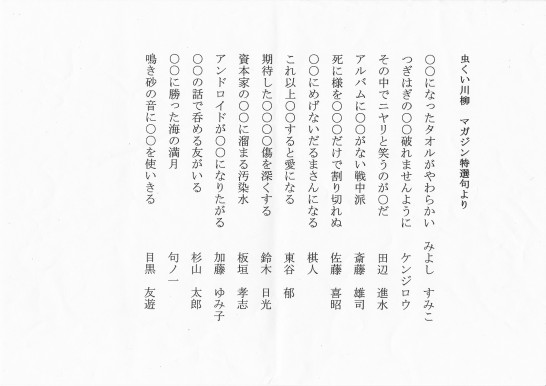 虫くい川柳　マガジン特選句より
〇〇になったタオルがやわらかい　みよし　すみこ
つぎはぎの〇〇破れませんように　ケンジロウ
その中でニヤリと笑うのが〇だ　田辺　進水
アルバムに〇〇がない戦中派　斎藤　雄司
死に様を〇〇〇だけで割り切れぬ　佐藤　喜昭
〇〇にめげないだるまさんになる　棋人
これ以上〇〇すると愛になる　東谷　郁
期待した〇〇〇〇傷を深くする　鈴木　日光
資本家の〇〇に溜まる汚染水　板垣　孝志
アンドロイドが〇〇になりたがる　加藤　ゆみ子
〇〇の話で呑める友がいる　杉山　太郎
〇〇に勝った海の満月　句ノ一
鳴き砂の音に〇〇を使いきる　目黒　友遊